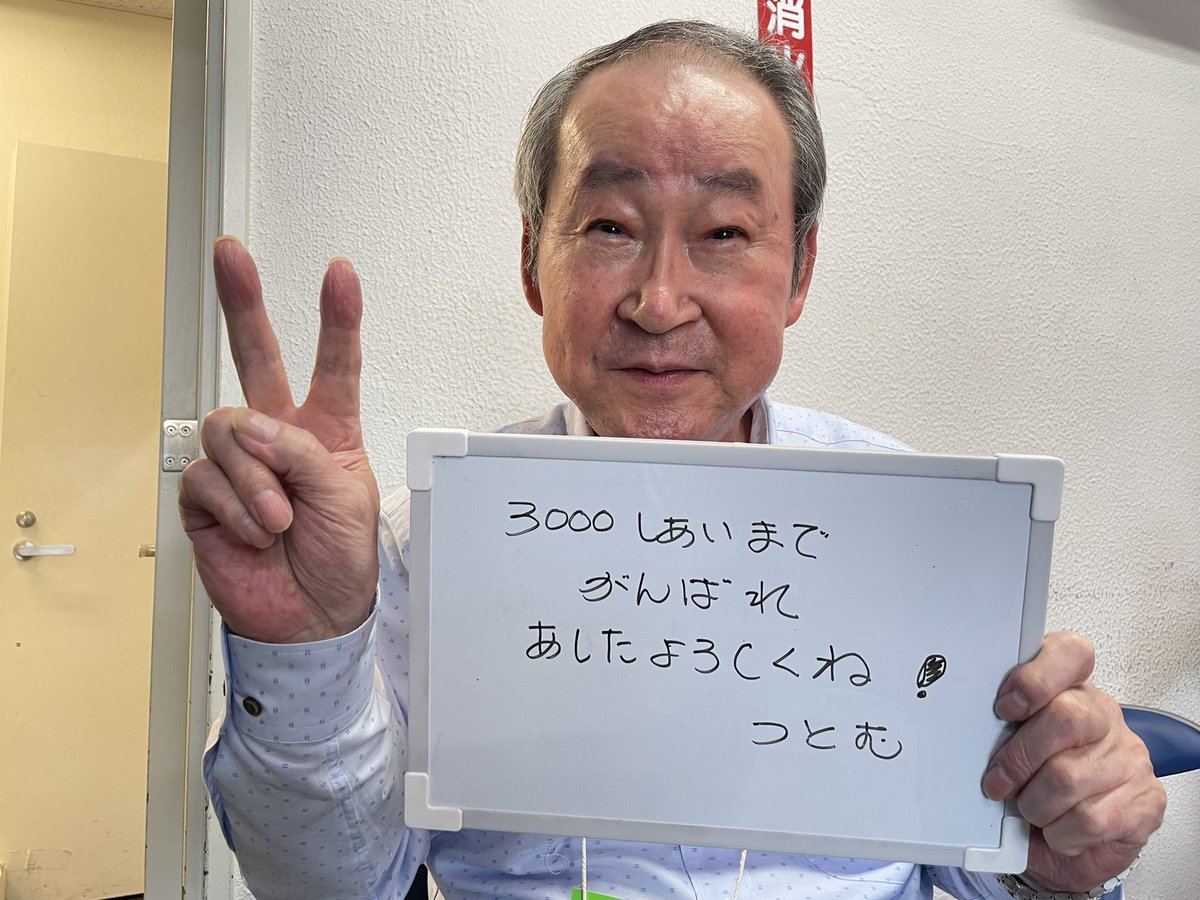 消火
3000しあいまで
がんばれ
あしたよろしくね!
つとむ